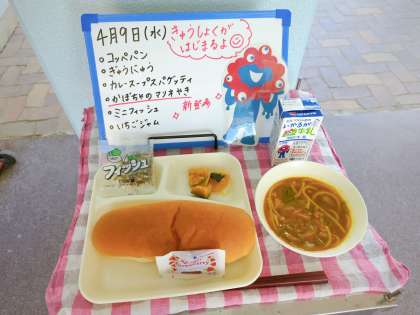 4月9日(水)
きゅうしょくが
はじまるよ
・コッパパン
・ぎゅうにゅう
・カレースープスパゲッティ
・かぼちゃのマリネやき
・ミニフィッシュ
・いちごジャム
新登場
いかるが
牛乳
フィッシュ